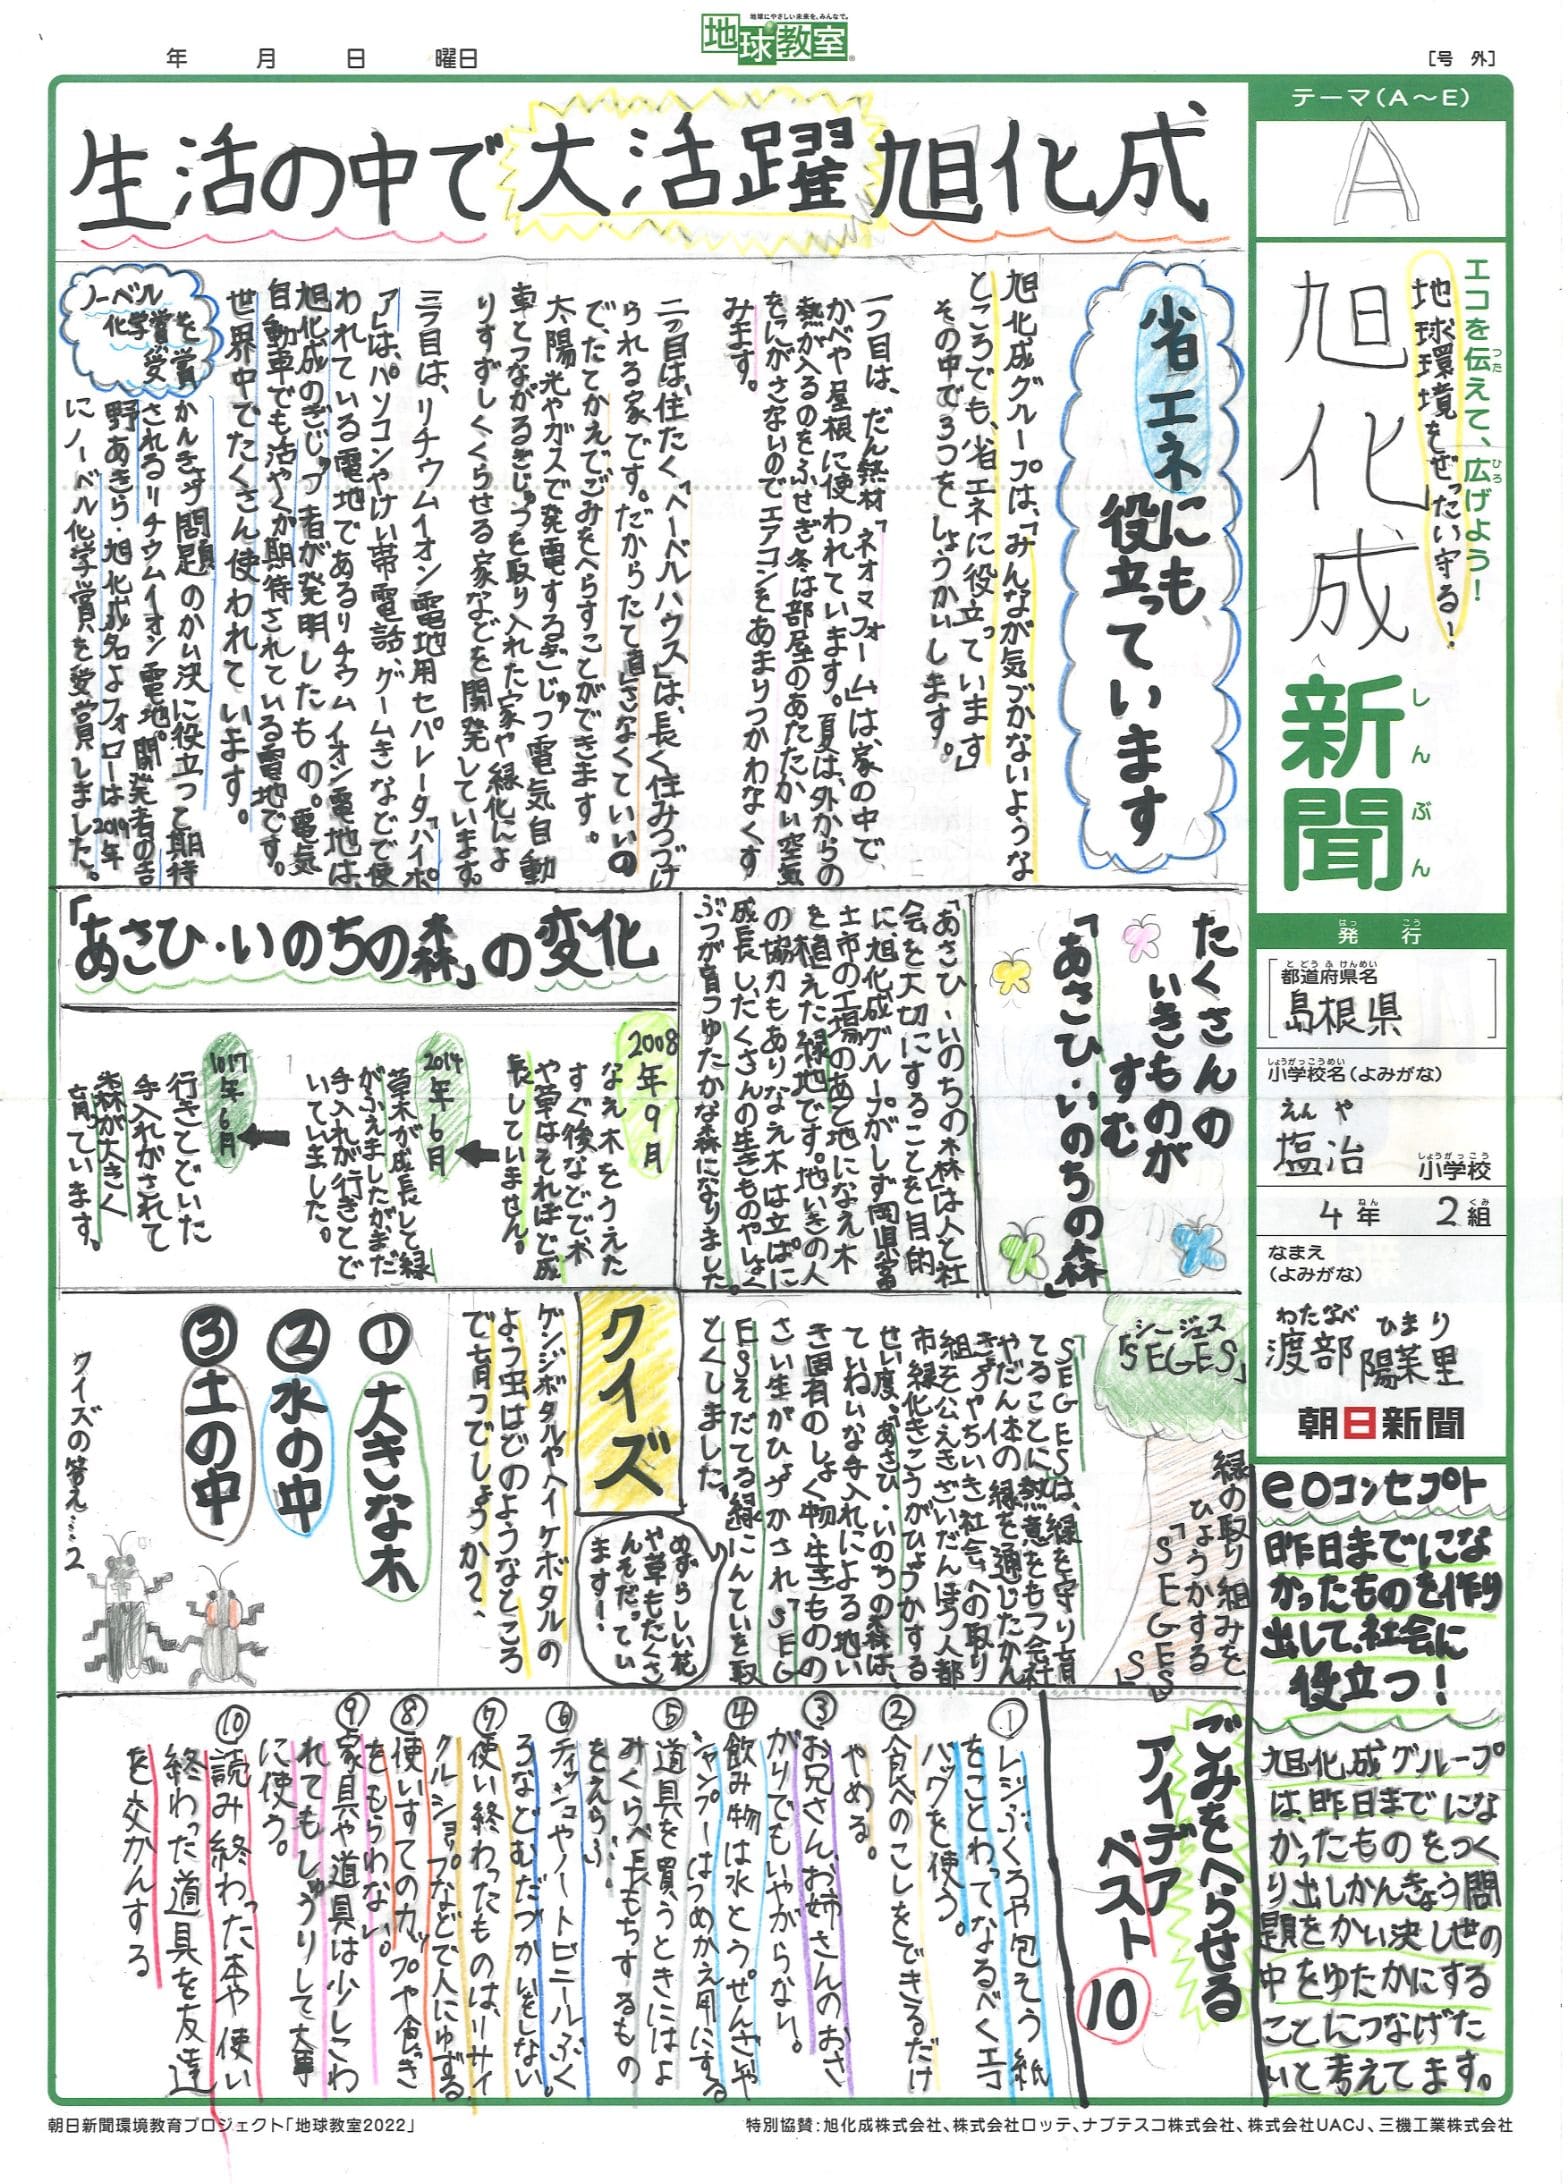 地球にやさしい未来を、みんなで。
地球教室
年 月 日 曜日
[号 外]
テーマ(A〜E)
A
エコを伝えて、広げよう!
つた
ひろ
地球環境をぜったい守る!
旭化成
新聞
しんぶん
発行
はっこう
都道府県名
とどうふけんめい
島根県
小学校名(よみがな)
しょうがっこうめい
えんや
塩冶
小学校
しょうがっこう
4年 2組
ねん くみ
なまえ
(よみがな)
わたなべ ひまり
渡部 陽茉里
朝日新聞
生活の中で大活躍旭化成
省エネにも
役立っています
旭化成グループは、「みんなが気づかないような
ところでも、省エネに役立っています」
その中で3つをしょうかいします。
一つ目は、だん熱材「ネオマフォーム」は、家の中で、
かべや屋根に使われています。夏は、外からの
熱が入るのをふせぎ冬は部屋のあたたかい空気
をにがさないのでエアコンをあまりつかわなくす
みます。
二つ目は、住たく「ヘーベルハウス」は、長く住みつづけ
られる家です。だからたて直さなくていいの
で、たてかえでごみをへらすことができます。
太陽光やガスで発電するぎじゅつ電気自動
車とつながるぎじゅつを取り入れた家や緑化によ
りすずしくくらせる家などを開発しています。
三つ目は、リチウムイオン電池用セパレータ「ハイポ
ア」は、パソコンやけい帯電話、ゲームきなどで使
われている電池であるリチウムイオン電池は、
旭化成のぎじゅつ者が発明したもの。電気
自動車でも活やくが期待されている電池です。
世界中でたくさん使われています。
ノーベル
化学賞を
受賞
かんきょう問題のかい決に役立つと期待
されるリチウムイオン電池。開発者の吉
野あきら・旭化成名よフォローは2019年
にノーベル化学賞を受賞しました。
たくさんの
いきものが
すむ
「あさひ・いのちの森」
「あさひ・いのちの森」は人と社
会を大切にすることを目的
に旭化成グループがしず岡県富
士市の工場のあと地になえ木
を植えた緑地です。地いきの人
の協力もありなえ木は立ぱに
成長し、たくさんの生きものやしょく
ぶつが育つゆたかな森になりました。
「あさひ・いのちの森」の変化
2008年9月
なえ木をうえた
すぐ後などで木
や草はそれほど成
長していません。
2014年6月
草木が成長して緑
がふえましたがまだ
手入れが行きとど
いていました。
1017年6月
行きとどいた
手入れがされて
森が大きく
育っています。
シージェス
「SEGES」
緑の取り組みを
ひょうかする
「SEGES」
SEGESは、緑を守り育
てることに熱意をもつ会社
やだん体の緑を通じたかん
きょうやちいき社会への取り
組を公えきざいだんほう人都
市緑化きこうがひょうかする
せい度。「あさひ・いのちの森は、
ていねいな手入れによる地い
き固有のしょく物生きものの
さい生がひょうかされ「SEG
ESそだてる緑」にんていを取
とくしました。
クイズ
めずらしい花
や草もたくさ
んそだってい
ます!
ゲンジボタルやヘイケボタルの
よう虫はどのようなところ
で育つでしょうか?
①大きな木
②水の中
③土の中
クイズの答え…2
ごみをへらせる
アイデア
ベスト10
①レジぶくろや包そう紙
をことわってなるべくエコ
バッグを使う。
②食べのこしをできるだけ
やめる。
③お兄さん、お姉さんのおさ
がりでもいやがらない。
④飲み物は水とうぜんざいや
シャンプーはつめかえ用にする
⑤道具を買うときにはよ
みくらべ長もちするもの
をえらぶ。
⑥ティッシュやノートビニールぶく
ろなどむだづかいをしない。
⑦使い終わったものは、リサイ
クルショップなどで人にゆずる
⑧使いすてのカップや食っき
をもらわない。
⑨家具や道具は少しこわ
れてもしゅうりして大事
に使う。
⑩読み終わった本や使い
終わった道具を友達
を交かんする
eoコンセプト
昨日までにな
かったものを作り
出して、社会に
役立つ!
旭化成グループ
は、昨日までにな
かったものをつく
り出しかんきょう問
題をかい決し世の
中をゆたかにする
ことにつなげた
いと考えてます。
朝日新聞環境教育プロジェクト「地球教室2022」
特別協賛:旭化成株式会社、株式会社ロッテ、ナブテスコ株式会社、株式会社UACJ、三機工業株式会社